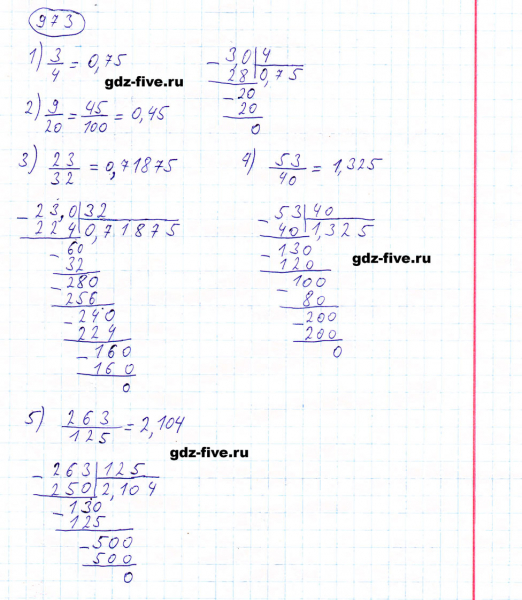 973
1) 3/4 = 0,75
gdz-five.ru
3,0 | 4
28 | 0,75
- 20
20
0
2) 9/20 = 45/100 = 0,45
3) 23/32 = 0,71875
- 23,0 | 32
224 | 0,71875
- 60
32
- 280
256
- 240
224
- 160
160
0
4) 53/40 = 1,325
- 53 | 40
40 | 1,325
- 130
120
- 100
80
- 200
200
0
gdz-five.ru
5) 263/125 = 2,104
gdz-five.ru
- 263 | 125
250 | 2,104
- 130
125
- 500
500
0